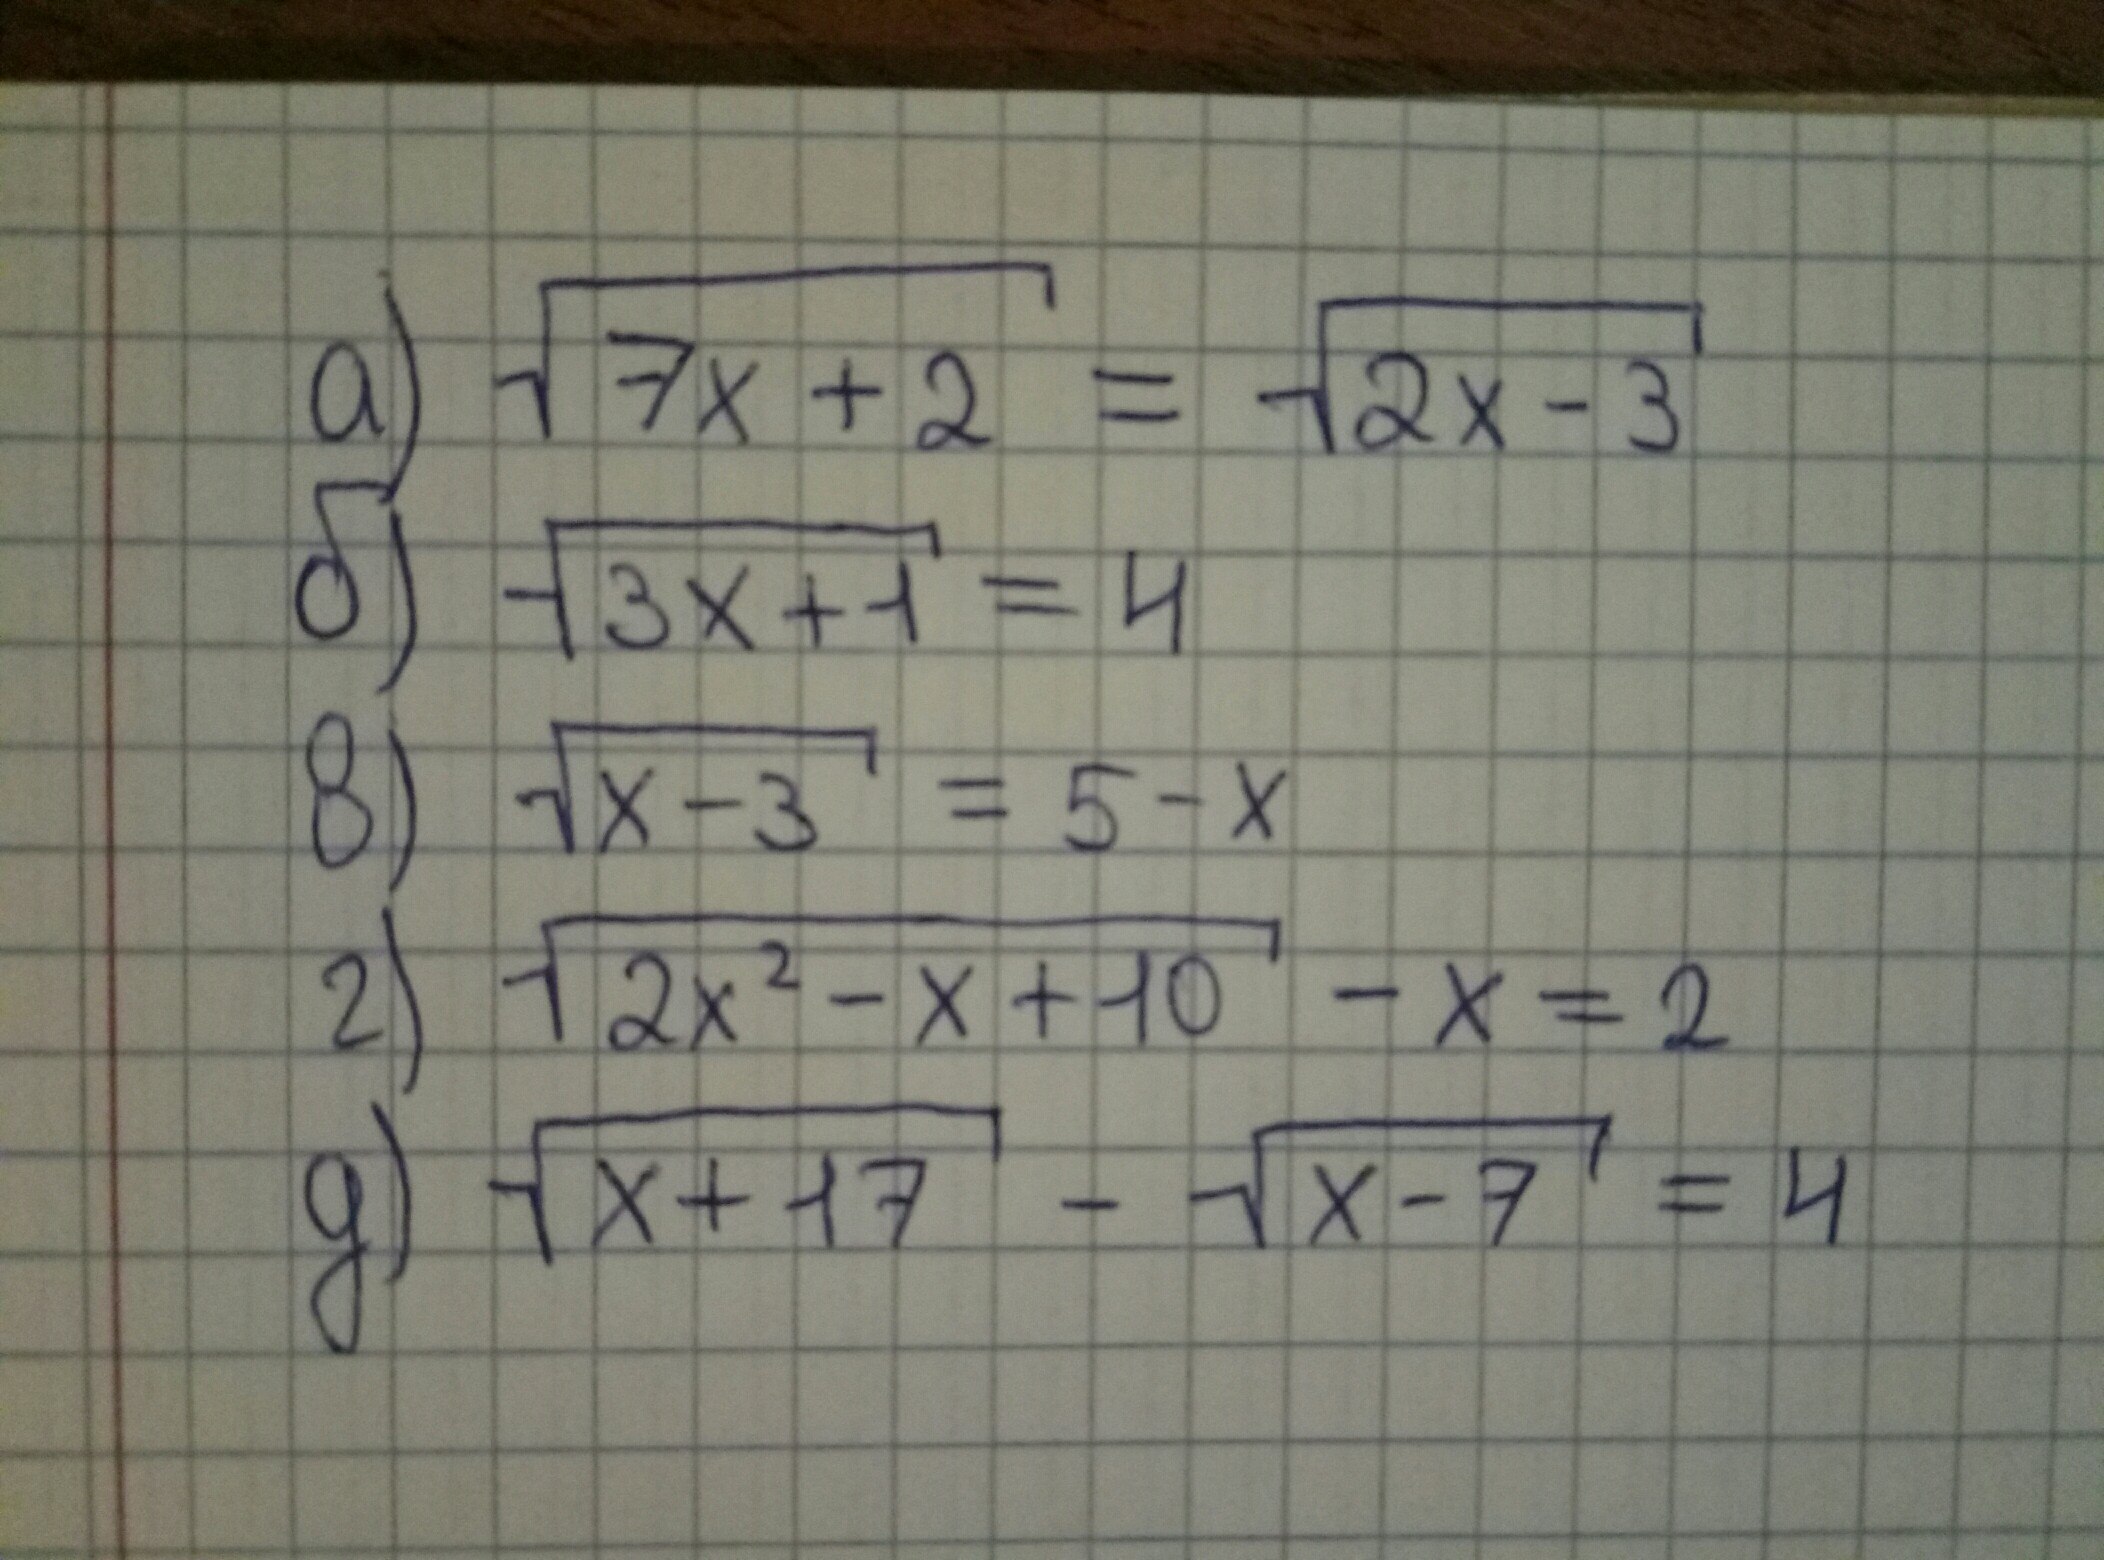 а) √(7x + 2) = √(2x - 3)
б) √(3x + 1) = 4
в) √(x - 3) = 5 - x
г) √(2x² - x + 10) - x = 2
д) √(x + 17) - √(x - 7) = 4